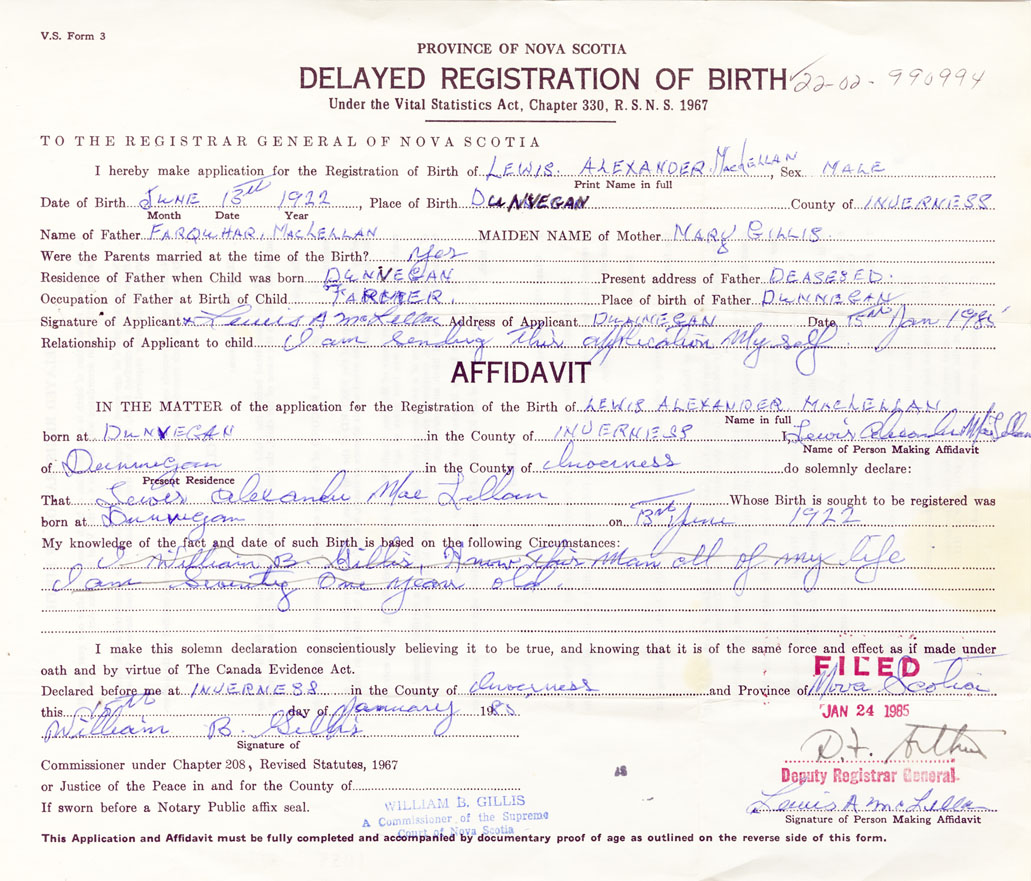 V.S. Form 3
PROVINCE OF NOVA SCOTIA
DELAYED REGISTRATION OF BIRTH 22-02-990994
Under the Vital Statistics Act, Chapter 330, R.S.N.S. 1967
TO THE REGISTRAR GENERAL OF NOVA SCOTIA
I hereby make application for the Registration of Birth of LEWIS ALEXANDER MacLELLAN, Sex MALE
Print Name in full
Date of Birth JUNE 13th 1922, Place of Birth DUNVEGAN County of INVERNESS
Month Date Year
Name of Father FARQUHAR, MACLELLAN MAIDEN NAME of Mother MARY GILLIS.
Were the Parents married at the time of the Birth? Yes
Residence of Father when Child was born DUNVEGAN Present address of Father DEASESED.
Occupation of Father at Birth of Child FARMER. Place of birth of Father DUNNEGAN
Signature of Applicant x Lewis A McLellan Address of Applicant DUNNEGAN Date 15th Jan 1985
Relationship of Applicant to child I am sending this application My self
AFFIDAVIT
IN THE MATTER of the application for the Registration of the Birth of LEWIS ALEXANDER MACLELLAN
Name in full
born at DUNVEGAN in the County of INVERNESS I, Lewis Alexander MacLellan
Name of Person Making Affidavit
of Dunnegan in the County of Inverness do solemnly declare:
Present Residence
That Lewis Alexander Mac Lellan Whose Birth is sought to be registered was
born at Dunvegan on June 1922
My knowledge of the fact and date of such Birth is based on the following Circumstances:
I William B. Gillis, Know This Man all of my life
I am Seventy One years old.
I make this solemn declaration conscientiously believing it to be true, and knowing that it is of the same force and effect as if made under
oath and by virtue of The Canada Evidence Act.
FILED
Declared before me at INVERNESS in the County of Inverness and Province of Nova Scotia
this 15th day of January 1985
JAN 24 1985
William B. Gillis
Signature of
Commissioner under Chapter 208, Revised Statutes, 1967
Deputy Registrar General
or Justice of the Peace in and for the County of
If sworn before a Notary Public affix seal.
WILLIAM B. GILLIS
A Commissioner of the Supreme
Court of Nova Scotia
Lewis A McLellan
Signature of Person Making Affidavit
This Application and Affidavit must be fully completed and accompanied by documentary proof of age as outlined on the reverse side of this form.